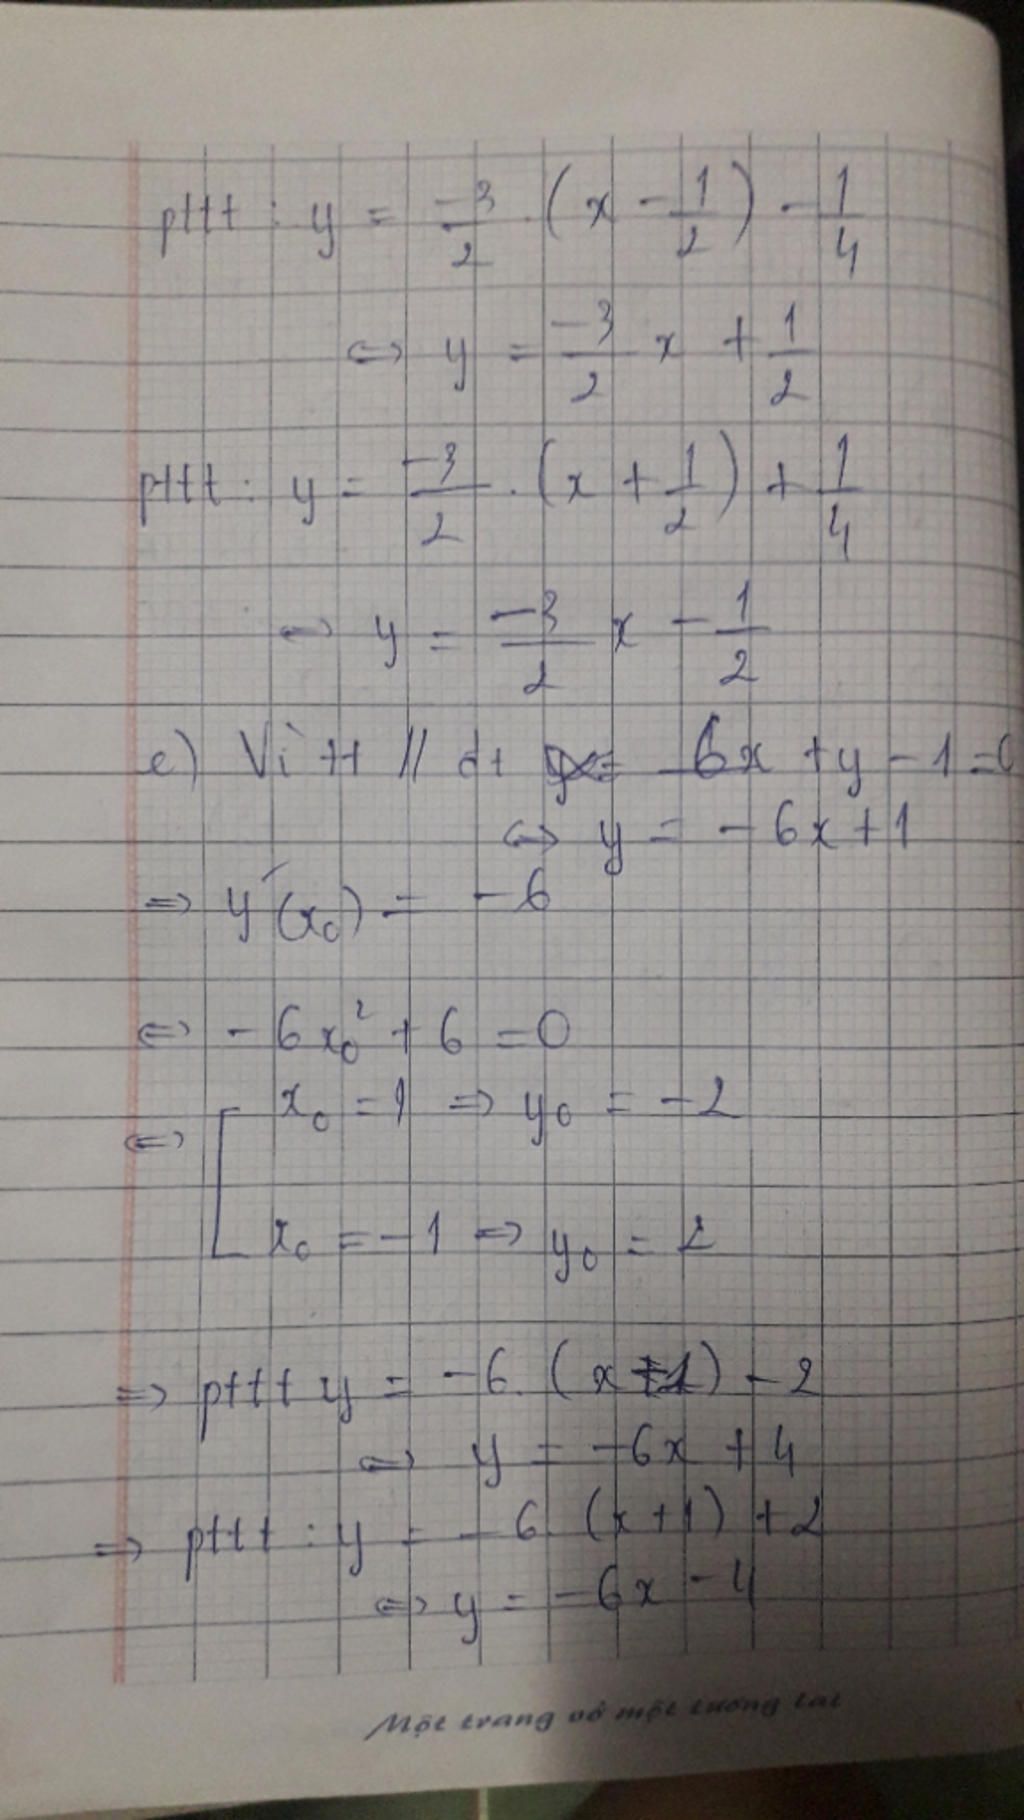 pttt : y = -3/2 . (x - 1/2) - 1/4
⇔ y = -3/2 x + 1/2
pttt : y = -3/2 . (x + 1/2) + 1/4
⇔ y = -3/2 x - 1/2
e) Vì tt // đt 6x + y - 1 = 0
⇔ y = -6x + 1
⇒ y'(x₀) = -6
⇔ -6x₀² + 6 = 0
⇔ [ x₀ = 1 ⇒ y₀ = -2
x₀ = -1 ⇒ y₀ = 2
⇒ pttt y = -6. (x - 1) - 2
⇔ y = -6x + 4
⇒ pttt : y = -6 (x + 1) + 2
⇔ y = -6x - 4
Một trang vở một tương lai